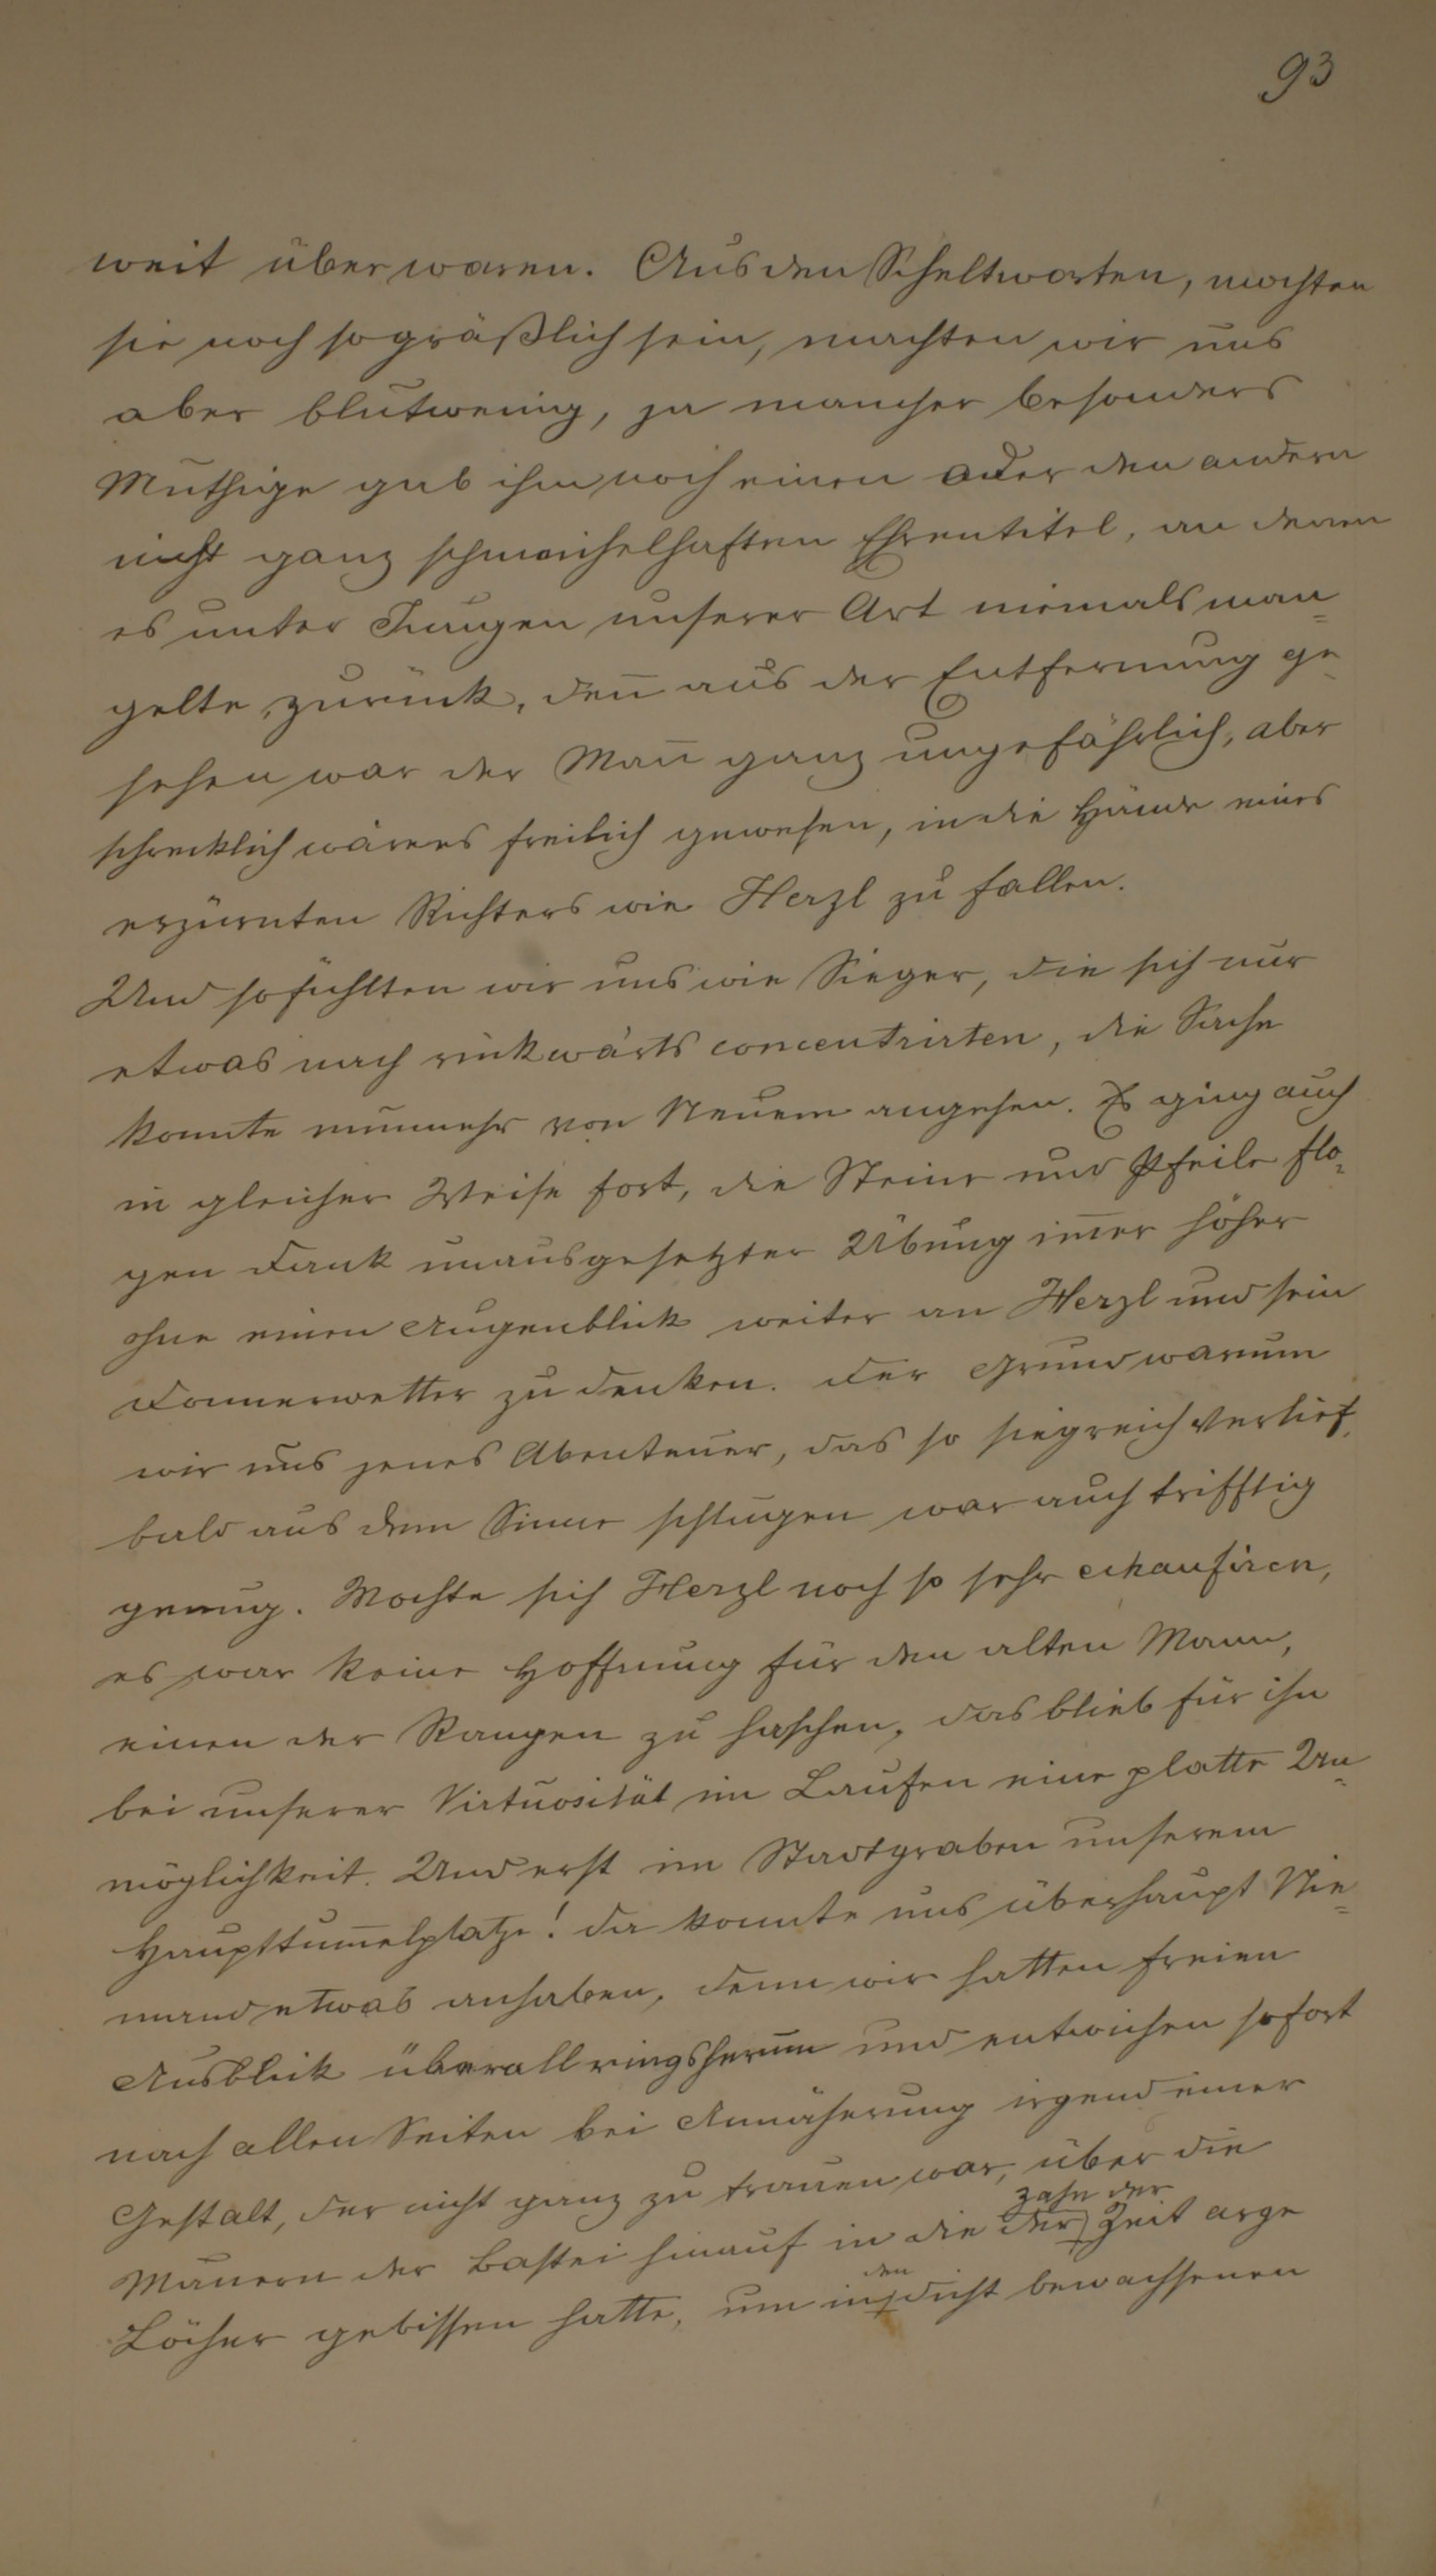 93
weit über waren. Aus den Scheltworten, mochten
sie noch so gräßlich sein, machten wir uns
aber blutwenig, ja mancher besonders
Muthige gab ihm noch einen oder den andern
nicht ganz schmeichelhaften Ehrentitel, an denen
es unter Jungen unserer Art niemals man=
gelte, zurück, deñ aus der Entfernung ge=
sehen war der Mañ ganz ungefährlich, aber
schrecklich wäre es freilich gewesen, in die Hände eines
erzürnten Richters wie Herzl zu fallen.
Und so fühlten wir uns wie Sieger, die sich nur
etwas nach rückwärts concentrirten, die Sache
konnte nunmehr von Neuem angehen. Es ging auch
in gleicher Weise fort, die Steine und Pfeile flo=
gen Dank unausgesetzter Übung im̄er höher
ohne einen Augenblick weiter an Herzl und sein
Donnerwetter zu denken. Der Grund warum
wir uns jenes Abenteuer, das so siegreich verlief,
bald aus dem Sinne schlugen war auch trifftig
genug. Mochte sich Herzl noch so sehr echaufiren,
es war keine Hoffnung für den alten Mann,
einen der Rangen zu haschen, das blieb für ihn
bei unserer Virtuosität im Laufen eine platte Un=
möglichkeit. Und erst im Stadtgraben unserem
Haupttum̄elplatze! Da konnte uns überhaupt Nie=
mand etwas anhaben, denn wir hatten freien
Ausblick überall ringsherum und entwichen sofort
nach allen Seiten bei Annäherung irgend einer
Gestalt, der nicht ganz zu trauen war, über die
Zahn der
Mauern der Bastei hinauf in die der Zeit arge
den
Löcher gebissen hatte, um in dicht bewachsenen